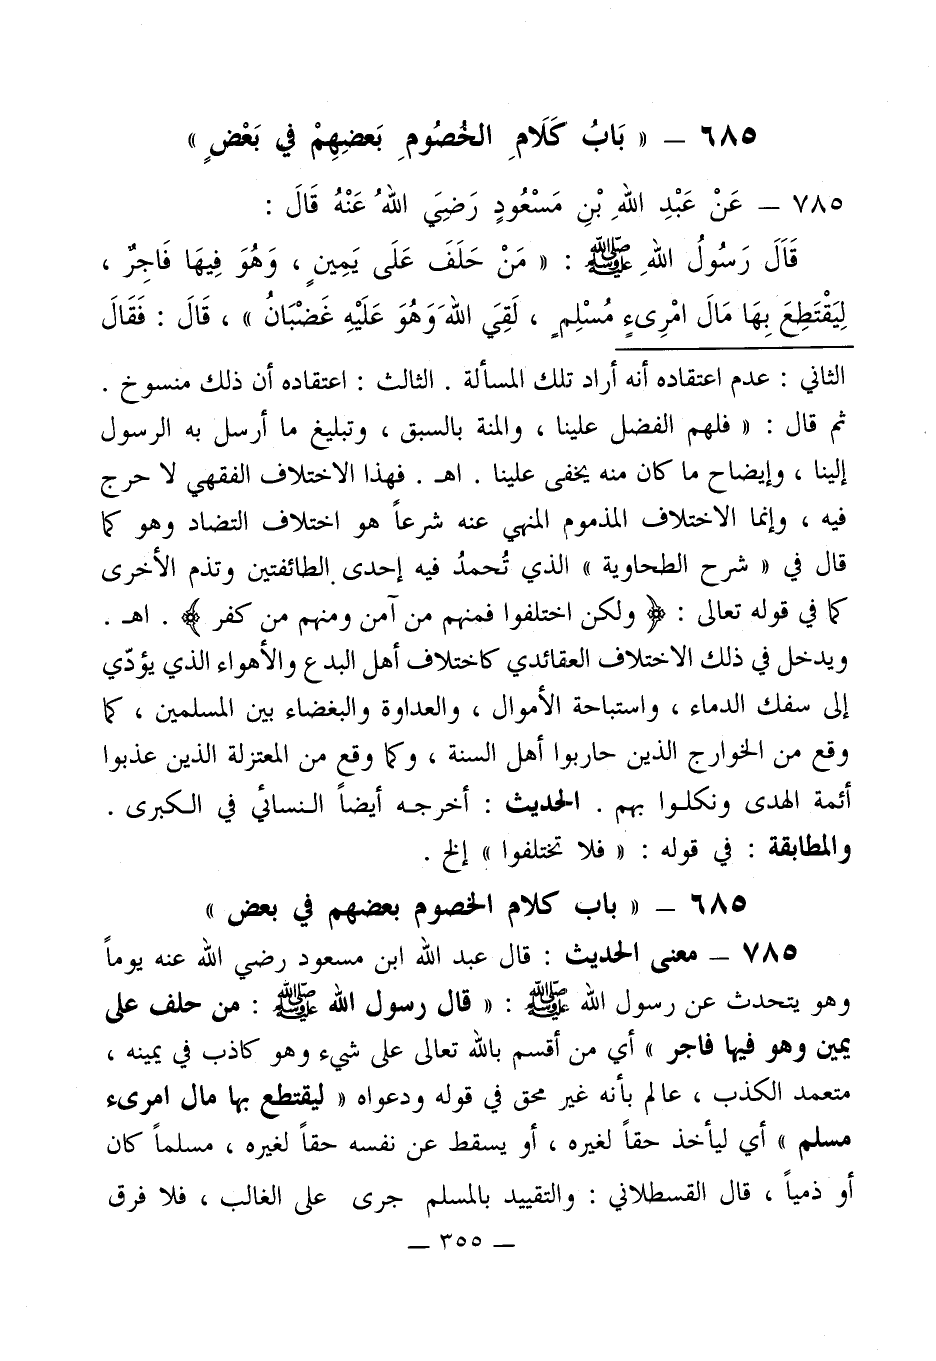 ٦٨٥ – « بَابُ كَلَامِ الخُصُومِ بَعضِهِمْ في بَعْضٍ »
٧٨٥ – عَنْ عَبْدِ اللهِ بْنِ مَسْعُودٍ رَضِيَ اللهُ عَنْهُ قَالَ :
قَالَ رَسُولُ اللهِ ﷺ : « مَنْ حَلَفَ عَلَى يَمِينٍ ، وَهُوَ فِيهَا فَاجِرٌ ،
لِيَقْتَطِعَ بِهَا مَالَ امْرِىءٍ مُسْلِمٍ ، لَقِيَ اللهَ وَهُوَ عَلَيْهِ غَضْبَانُ » ، قَالَ : فَقَالَ
الثاني : عدم اعتقاده أنه أراد تلك المسألة . الثالث : اعتقاده أن ذلك منسوخ .
ثم قال : « فلهم الفضل علينا ، والمنة بالسبق ، وتبليغ ما أرسل به الرسول
إلينا ، وإيضاح ما كان منه يخفى علينا . اهـ . فهذا الاختلاف الفقهي لا حرج
فيه ، وإنما الاختلاف المذموم المنهي عنه شرعاً هو اختلاف التضاد وهو كما
قال في « شرح الطحاوية » الذي تُحمدُ فيه إحدى الطائفتين وتذم الأخرى
كما في قوله تعالى : ﴿ ولكن اختلفوا فمنهم من آمن ومنهم من كفر ﴾ . اهـ .
ويدخل في ذلك الاختلاف العقائدي كاختلاف أهل البدع والأهواء الذي يؤدّي
إلى سفك الدماء ، واستباحة الأموال ، والعداوة والبغضاء بين المسلمين ، كما
وقع من الخوارج الذين حاربوا أهل السنة ، وكما وقع من المعتزلة الذين عذبوا
أئمة الهدى ونكلوا بهم . الحديث : أخرجه أيضاً النسائي في الكبرى .
والمطابقة : في قوله : « فلا تختلفوا » إلخ .
٦٨٥ – « باب كلام الخصوم بعضهم في بعض »
٧٨٥ – معنى الحديث : قال عبد الله ابن مسعود رضي الله عنه يوماً
وهو يتحدث عن رسول الله ﷺ : « قال رسول الله ﷺ : من حلف على
يمين وهو فيها فاجر » أي من أقسم بالله تعالى على شيء وهو كاذب في يمينه ،
متعمد الكذب ، عالم بأنه غير محق في قوله ودعواه « ليقتطع بها مال امرىء
مسلم » أي ليأخذ حقاً لغيره ، أو يسقط عن نفسه حقاً لغيره ، مسلماً كان
أو ذمياً ، قال القسطلاني : والتقييد بالمسلم جرى على الغالب ، فلا فرق
– ٣٥٥ –